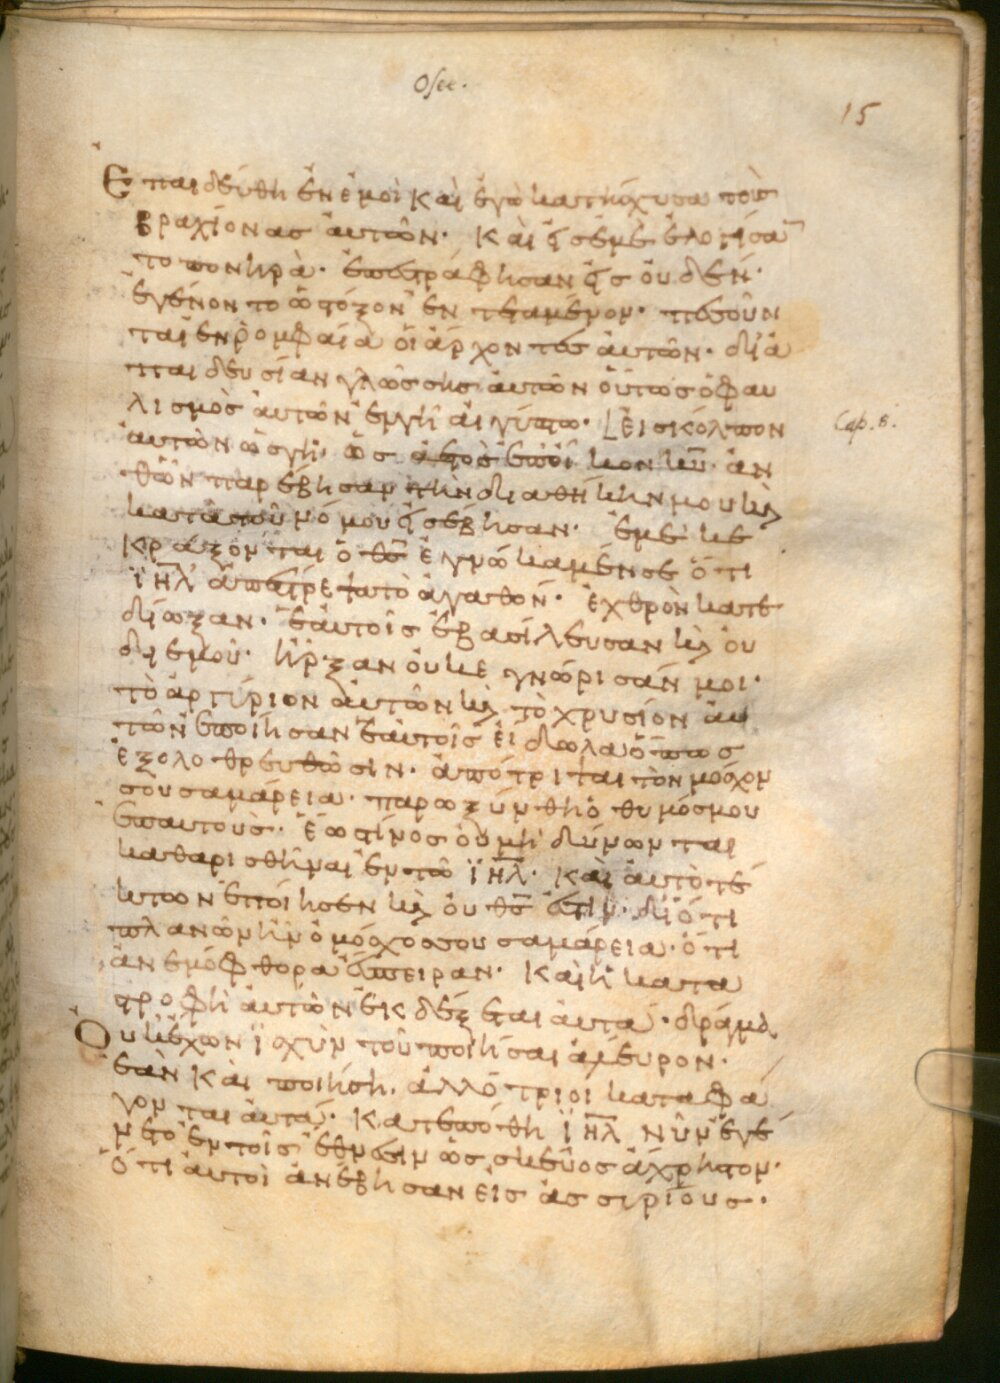 Osee.
15
Ἐπαιδεύθη ἐν ἐμοὶ καὶ ἐγὼ κατηόχυσα τοὺσ
βραχίονασ ἀυτῶν· καὶ ἐισ ἐμὲ ἐλογίσα
το πονηρὰ· ἐπεστράφησαν ἐισ ὀυδὲν·
ἐγένοντο ὡστόξον ἐντεταμένον· πεσοῦν
ται ἐν ῥομφαίᾳ ὁι ἄρχοντεσ ἀυτῶν· διἀ
παιδευσίαν γλώσσησ ἀυτῶν ὁύτωσ ὁφαυ
λισμὸσ ἀυτῶν ἐν γῆ ἀιγύπτω· Ἐισ κόλπον
Cap. 8.
ἀυτῶν ὡσ γῆ· ὡσ ἀετὸσ ἐπ ὀῖκον κῡ· ἀν
θῶν παρέβησαν τὴν διαθήκην μου κὰι
κατὰ τοῦ νόμου ἠσέβησαν· ἐμὲ κε
κράξονται ὁ θσ ἐγνώκαμέν σε ὅτι
ϊηλ ἀπεστρέψατο ἀγαθὸν· ἐχθρὸν κατε
δίωξαν· ἑαυτοῖσ ἐβασίλευσαν κὰι ὀυ
δι ἐμοῦ· ἦρξαν ὀυκ ἐγνώρισάν μοι·
τὸ ἀργύριον ἀυτῶν κὰι τὸ χρυσίον ἀυ
τῶν ἐποίησαν ἑαυτοῖσ ἐίδωλα ὅπωσ
ἐξολοθρευθῶσιν· ἀπότριψαι τὸν μόσχον
σου σαμάρεια· παρωξύνθη ὁ θυμόσ μου
ἐπ αυτοὺσ· ἕωστίνοσ ὀυ μὴ δύνωνται
καθαρισθῆναι ἐν τῶ ϊηλ· καὶ ἀυτὸ τέ
κτων ἐποίησεν κὰι ὀυ θσ ἐστὶν· διὅτι
πλανῶν ἦν ὁ μόσχοσ σου σαμάρεια· ὅτι
ἀνεμόφθορα ἔσπειραν· καὶ ἡ κατα
στροφὴ ἀυτῶν ἐκδέξεται ἀυτά· δράγμα
Ὀυκ ἔχων ϊσχὺν τοῦ ποιῆσαι ἄλευρον·
ἐὰν καὶ ποιήση· ἀλλότριοι καταφά
γονται ἀυτά· κατεπόθη ϊηλ νῦν ἐγέ
νετο ἐν τοῖσ ἔθνεσιν ὡσ σκεῦοσ ἄχρηστον·
ὅτι ἀυτοὶ ἀνέβησαν ἐισ ἀσσυρίουσ·